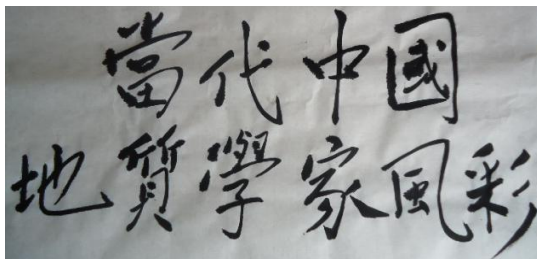 當代中國
地質學家風彩